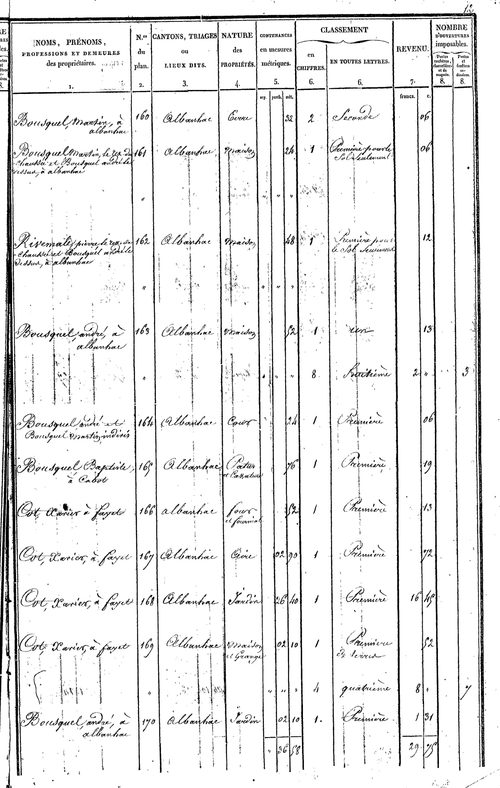 12
NOMS, PRÉNOMS,
PROFESSIONS ET DEMEURES
des propriétaires.
N.os
du
plan.
CANTONS, TRIAGES
ou
LIEUX DITS.
NATURE
des
PROPRIÉTÉS.
CONTENANCES
en mesures
métriques.
CLASSEMENT
en
CHIFFRES.
EN TOUTES LETTRES.
REVENU.
NOMBRE
D'OUVERTURES
imposables.
1. 2. 3. 4. 5. 6. 6. 7. 8. 8.
francs. c.
Bousquet, Martin, à 160 Albanhac 32 2 Seconde 06
albanhac
Bousquet Martin, le rez de 161 Albanhac Maison 24 1 Première pour le 06
chaussée et Bousquet andré le Sol Seulement
dessus, à albanhac
"
pierre, le rez de 162 Albanhac Maison 48 1 Première pour 12
chaussée et Bousquet andré le le Sol Seulement
dessus, à albanhac
"
Bousquet, andré, à 163 Albanhac Maison 52 1 un 13
albanhac
" 8 huitième 2 " 3
Bousquet andré et 164 Albanhac Cour 24 1 Première 06
Bousquet Martin, indivis
Bousquet Baptiste, 165 Albanhac Patus 76 1 Première 19
à Cabot
Cot, Xavier à fayet 166 albanhac four 52 1 Première 13
et fournial
Cot, Xavier, à fayet 167 Albanhac Aire 02 90 1 Première 72
Cot, Xavier, à fayet 168 Albanhac Jardin 26 40 1 Première 16 45
Cot, Xavier, à fayet 169 Albanhac Maison 02 10 1 Première 52
et Grange
" 4 quatrième 8 " 7
Bousquet, andré, à 170 Albanhac Jardin 02 10 1 Première 1 31
albanhac
" 36 58 29 75